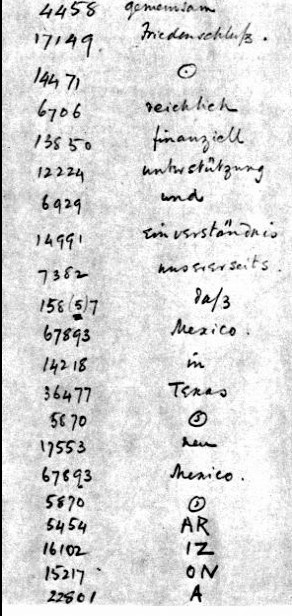 4458 gemeinsam
17149 Friedenschluß.
14471 ⊙
6706 reichlich
13850 finanziell
12224 unterstützung
6929 und
14991 einverständnis
7382 unsererseits.
158(5)7 daß
67893 Mexico.
14218 in
36477 Texas
5870 (,)
17553 neu
67893 Mexico.
5870 (,)
5454 AR
16102 IZ
15217 ON
22801 A